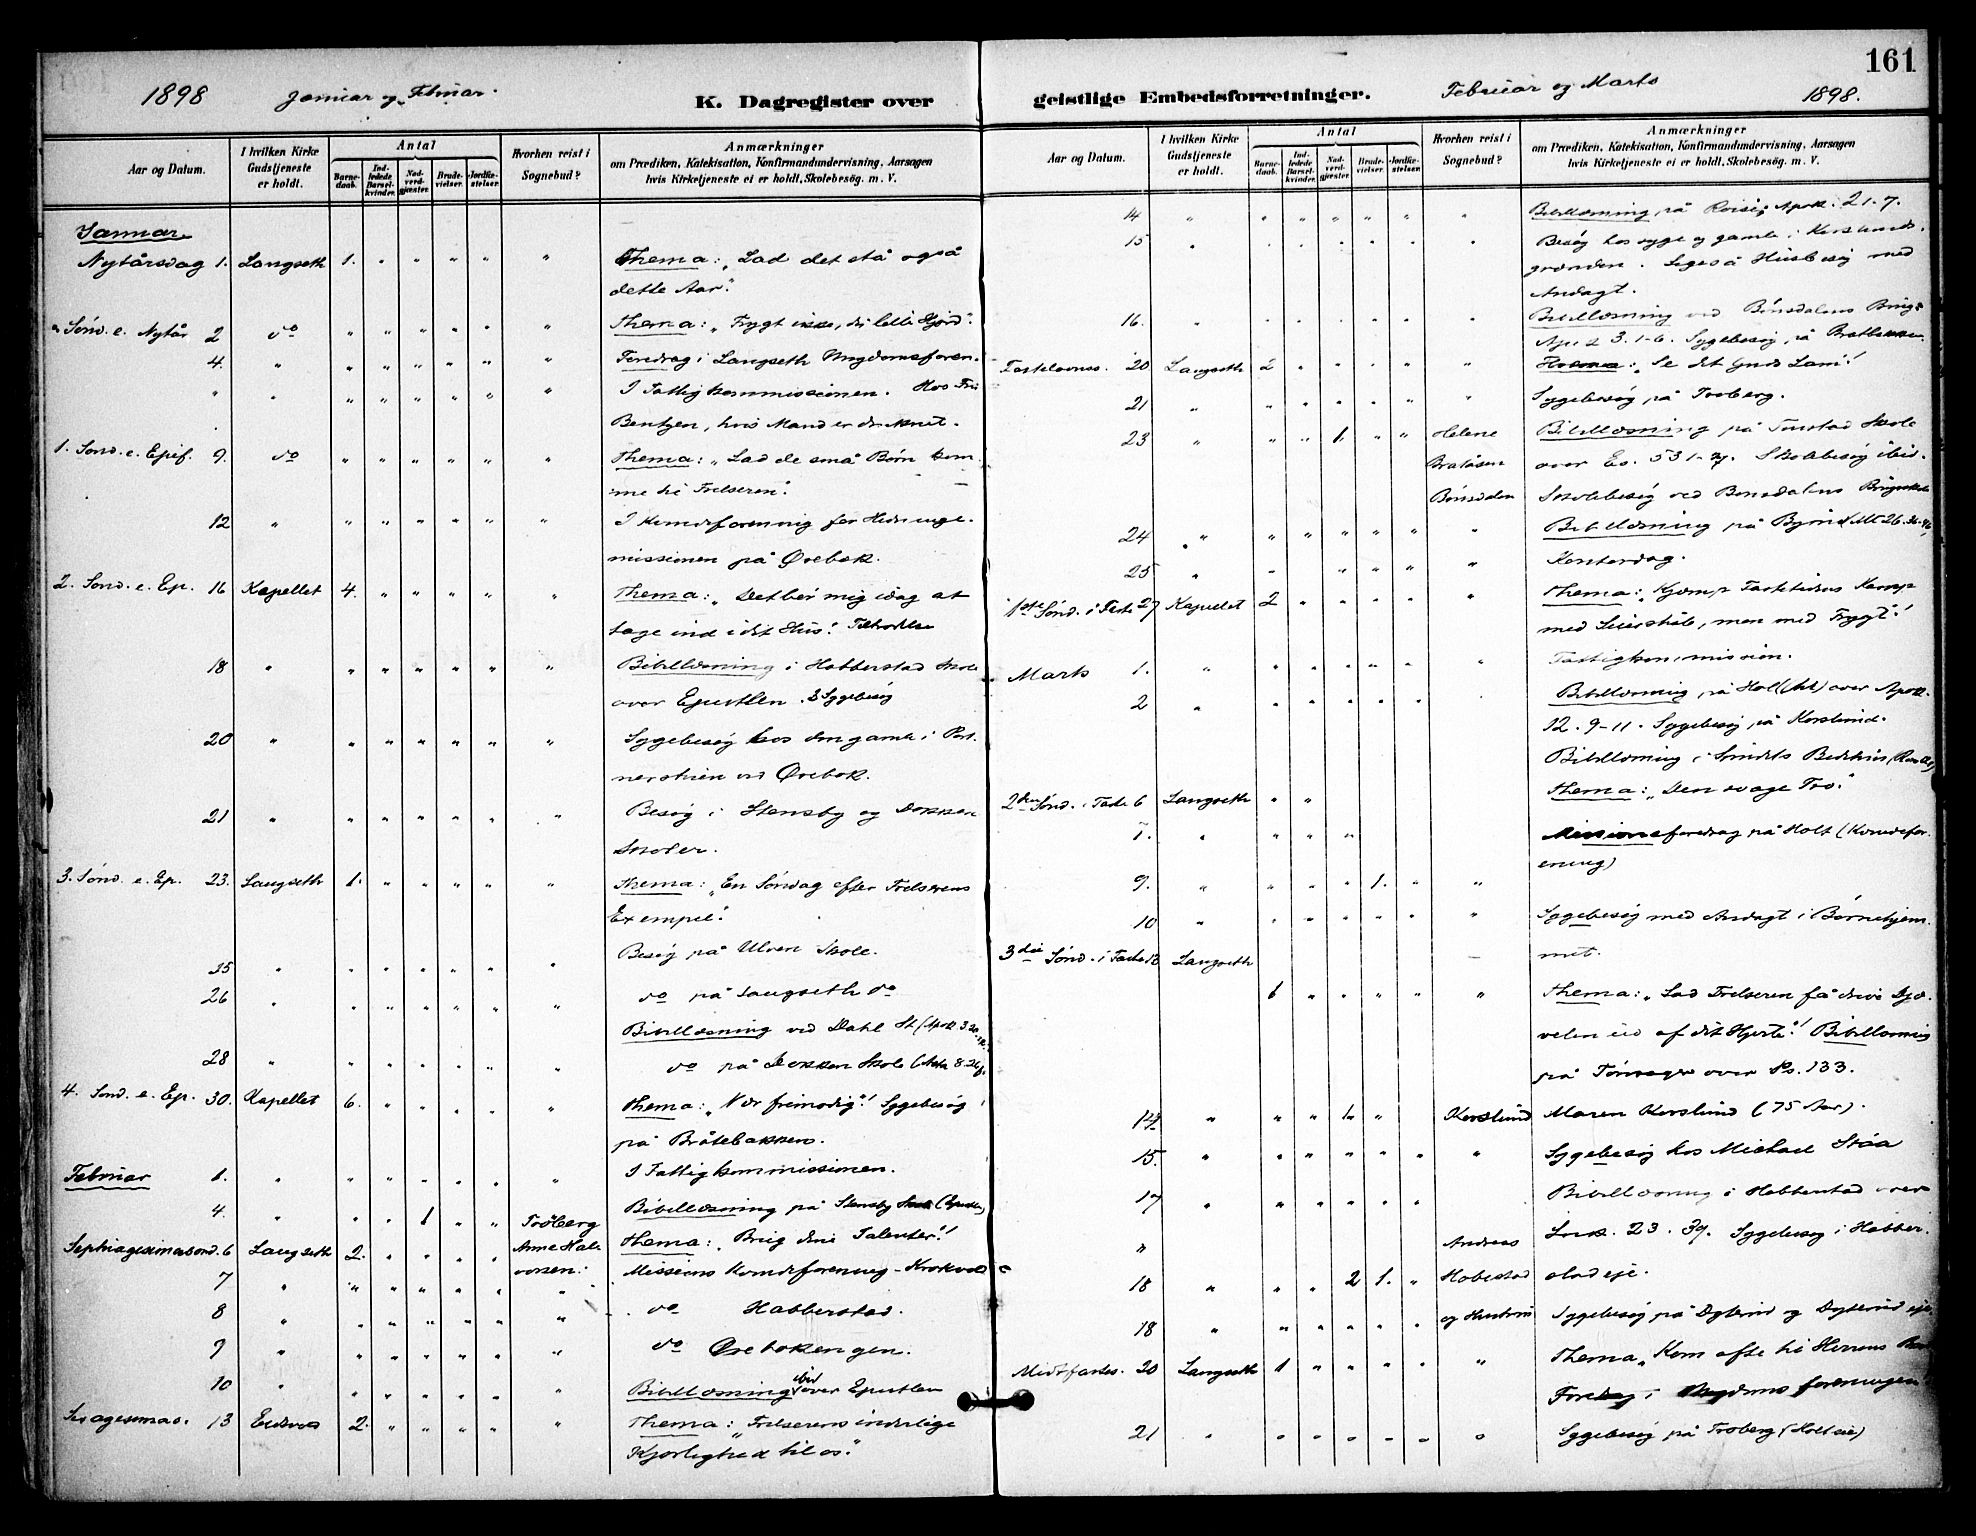 161
1898 Januar og Februar.
K. Dagregister over
Aar og Datum.
I hvilken Kirke Gudstjeneste er holdt.
Antal
Barnedaab.
Indledede Barselkvinder.
Nadverdgjæster.
Brudevielser.
Jordfæstelser.
Hvorhen reist i Sognebud?
Anmærkninger
om Prædiken, Katekisation, Konfirmandundervisning, Aarsagen
hvis Kirketjeneste ei er holdt, Skolebesøg. m. V.
Januar
Nytårsdag 1. Langseth 1. " " " " " Thema: „Lad det stå også
dette Aar".
Sønd. e. Nytår 2 do " " " " " " Thema: „Frygt ikke, du lille Hjord".
4. " " " " " " " Foredrag i Langseth Ungdomsforen.
" " " " " " " " I Fattigkommissionen. Hos Fru
Bentzen, hvis Mand er druknet.
1. Sønd. e. Epif. 9. do " " " " " " Thema: „Lad de små Børn kom-
me til Frelseren".
12 " " " " " " " I Kvindeforening for Hedninge-
missionen på Ørebæk.
2. Sønd. e. Ep. 16 Kapellet 4. " " " " " Thema: „Det bør mig idag at
tage ind i dit Hus".
18 " " " " " " " Bibellæsning i Habberstad Skole
over Epistlen. 2 Sygebesøg
20 " " " " " " " Sygebesøg hos den gamle i
ved Ørebæk.
21 " " " " " " " Besøg i Stensby og Dokken
Skoler.
3. Sønd. e. Ep. 23. Langseth 1. " " " " " Thema: „En Søndag efter Frelserens
Exempel".
25 " " " " " " " Besøg på Ulven Skole.
26 " " " " " " " do på Langseth do
Bibellæsning ved Dahl
28 " " " " " " " do på Dokken Skole (Acta 8.26
4. Sønd. e. Ep. 30. Kapellet 6. " " " " " Thema: „Vær frimodig". Sygebesøg
på Bråtebakken.
Februar 1. " " " " " " " I Fattigkommissionen.
4. " " " 1 " " Trøberg Bibellæsning på Stensby Skole
Septuagesima sønd. 6 Langseth 2. " " " " Anne Hal- Thema: „Brug dine Talenter"!
vorsen.
7 " " " " " " " Missions Kvindeforening
8 " " " " " " " do Habberstad.
9 " " " " " " " do Ørebækengen.
10 " " " " " " " Bibellæsning ibid over Epistlen
Sexagesimas. 13 Eidsvold 2. " " " " " Thema: „Frelserens inderlige
Kjærlighed til os."
geistlige Embedsforretninger. Februar og Marts 1898.
Aar og Datum.
I hvilken Kirke Gudstjeneste er holdt.
Antal
Barnedaab.
Indledede Barselkvinder.
Nadverdgjæster.
Brudevielser.
Jordfæstelser.
Hvorhen reist i Sognebud?
Anmærkninger
om Prædiken, Katekisation, Konfirmandundervisning, Aarsagen
hvis Kirketjeneste ei er holdt, Skolebesøg. m. V.
14 " " " " " " " Bibellæsning på Røisi, Apok. 2 1-7.
15 " " " " " " " Besøg hos syge og gamle i Korslunds-
grænden. Ligeså Husbesøg med
Andagt.
16. " " " " " " " Bibellæsning ved Bønsdalens Brug
3. 1-6. Sygebesøg på
Fastelavnss. 20 Langseth 2 " " " " " Thema: „Se det Guds Lam"!
21 " " " " " " " Sygebesøg på Trøberg.
23 " " " 1. " " Helene Bibellæsning på Finstad Skole
Bråtåsen over Es. 53 1-7. Skolebesøg ibid.
Bønsdalen Skolebesøg ved Bønsdalens Brugsskole
24 " " " " " " " Bibellæsning på Byrud Mt 26. 36-46
25 " " " " " " " Kontordag.
1ste Sønd. i Faste 27 Kapellet 2 " " " " " Thema: „Kjæmp Fastetidens Kamp
med Seiershåb, men med Frygt"!
Marts 1. " " " " " " " Fattigkommission.
2 " " " " " " " Bibellæsning på Hol over Apok.
12. 9-11. Sygebesøg på Korslund.
Bibellæsning i Smidts Bedehus
2den Sønd. i Faste 6 Langseth " " Thema: „Den svage Tro".
7. " " " " Missionsforedrag på Holt (Kvindefor-
ening)
9. " " " " 1. " "
10 " " " " " " " Sygebesøg med Andagt i Børnehjem-
met.
3die Sønd. i Faste 13 Langseth 6 " " " " " Thema: „Lad Frelseren få drive Djæ-
velen ud af dit Hjerte"! Bibellæsning
på Tønsager over Ps. 133.
14 " " " 1. " Korslund Maren Korslund (75 Aar).
15. " " " " " " " Sygebesøg hos Michael Ståa
17 " " " " " " Bibellæsning i Habberstad over
" Andreas Luk. 23. 39. Sygebesøg i Habber-
18 " " " 2 1. " Habestad stadeje.
og Hustru
18 " " " " " " Sygebesøg på Dyterud og Dyterud eje
Midtfastes. 20 Langseth 1 " " " " " Thema „Kom ofte til Herrens
Foredrag i Ungdomsforeningen
21 " " " " " " " Sygebesøg på Trøberg (Holt eie)